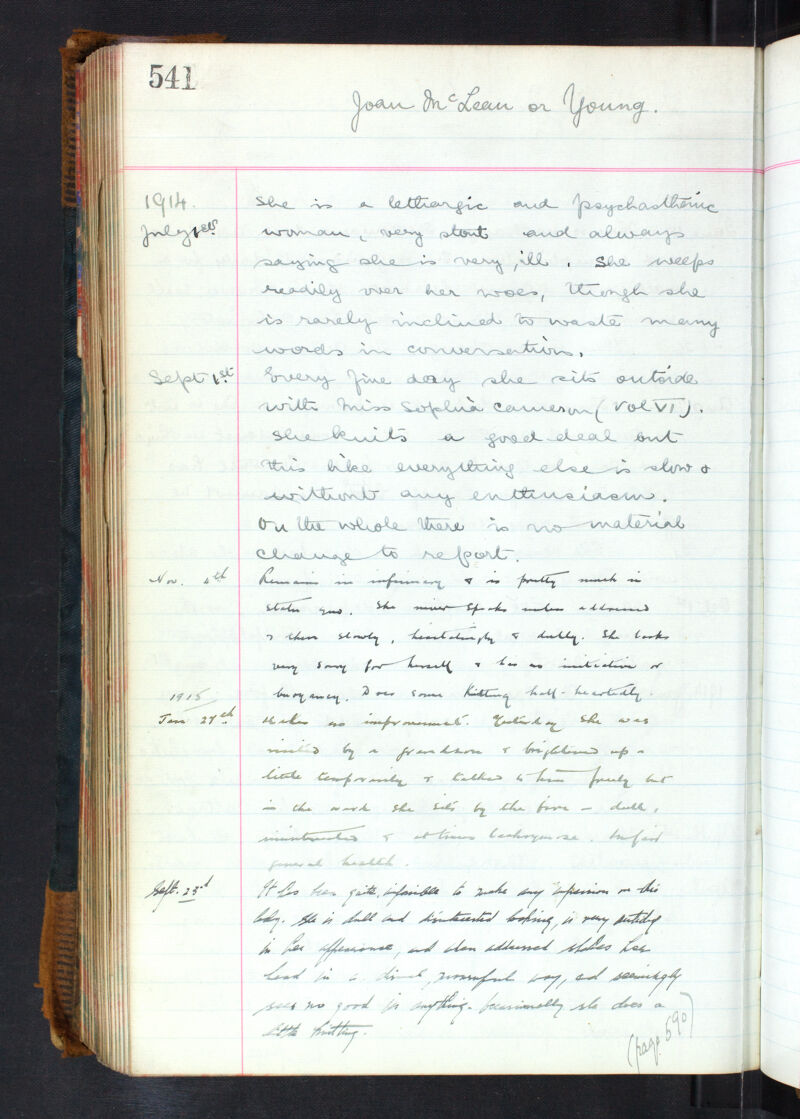 541
Joan McLean or Young.
1914.
July 1st
She is a lethargic and psychasthenic
woman, very stout and always
saying she is very ill. She weeps
readily over her woes, though she
is rarely inclined to waste many
words in conversation.
Sept 1st
Every fine day she sits outside
with Miss Sophia Cameron (Vol VI).
She knits a good deal but
this like everything else is slow &
without any enthusiasm.
On the whole there is no material
change to report.
Nov. 4th
Remains in infirmary & is pretty much in
statu quo. She never speaks unless addressed
& then slowly, hesitatingly & dully. She looks
very sorry for herself & has no initiative or
buoyancy. Does some Knitting half-heartedly.
1915
Jan 27th
Makes no improvement. Yesterday she was
visited by a grandson & brightened up a
little temporarily & talked to him freely but
in the ward she sits by the fire - dull,
uninterested & at times lachrymose. In fair
general health.
Sept. 23d
It has been quite impossible to make any impression on this
lady. She is dull and disinterested looking, is very untidy
in her appearance, and when addressed shakes her
head in a mournful way, and seemingly
sees no good in anything. Occasionally she does a
little knitting.
(page 590)